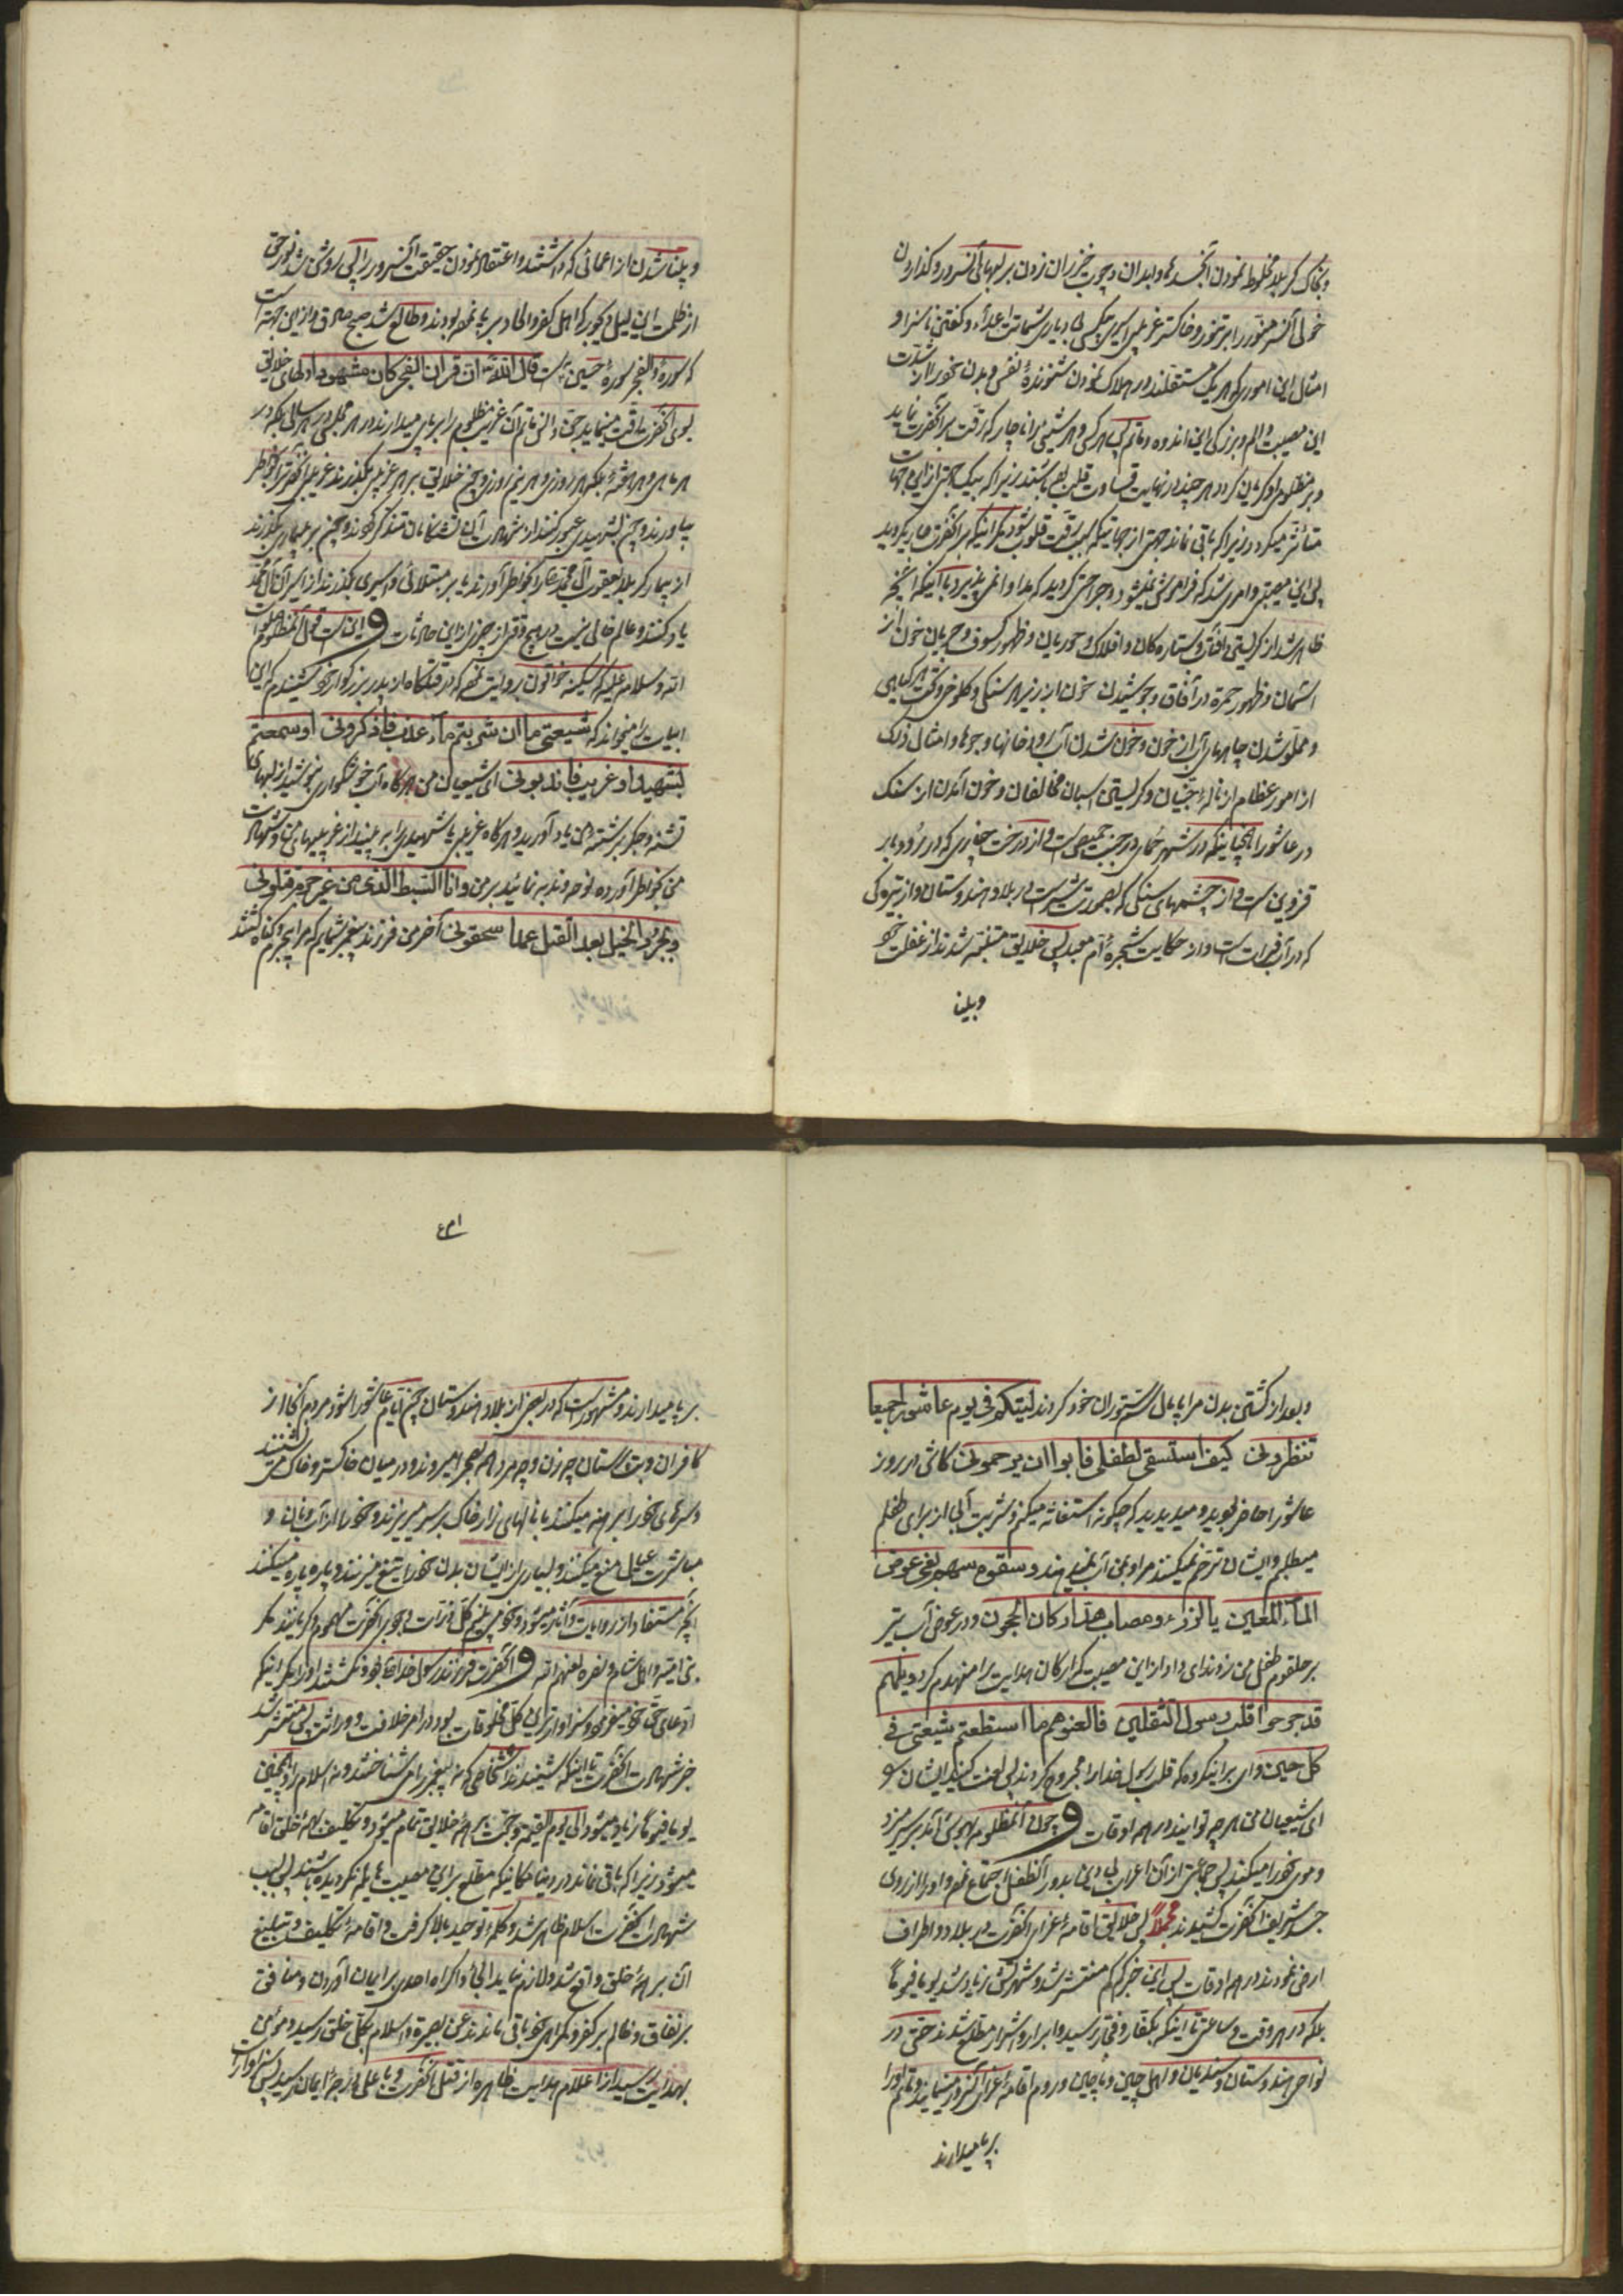 وبخاک کربلا مخلوط نمودن آنجسدها وبعد از آن چوب خیزران زدن بر لبهای آنسرور وکذاردن
خولی آنسر منور را بر تنور وخاکستر غریبی اسیری بیکسی بی دیاری شماتت اعداء وکفتن ناسزا و
امثال این اموری که هر یک مستقلند در هلاک نمودن شنونده نفس وبدن خود را از شدّت
این مصیبت والم وبزرکی این اندوه وماتم پس هر کسی وهر شقی را ناچار که رقّت بر آنحضرت نماید
وبر مظلومی او کریان کردد هر چند در نهایت قساوت قلب بوده باشند زیرا که بیک جهتی از این جهات
متأثر میکردد زیرا که باقی نماند جهتی از جهاتیکه سبب رقّت قلوب شود مکر اینکه بر آنحضرت جاری کردید
پس این مصیبتی وامری شد که فراموش نمیشود وجراحتی کردید که مداوا نمی پذیرد با آنکه آنچه
ظاهر شد از کریستن آفتاب وستاره کان وافلاک وحوریان وظهور کسوف وجریان خون از
آسمان وظهور حمره در آفاق وجوشیدن خون از زیر هر سنکی وکلوخی وتحت هر کیاهی
ومملوّ شدن چاهها از خون وخون شدن آب رودخانها وجوها وامثال ذلک
از امور عظام از ناله جنّیان وکریستن اسبان مخالفان وخون آمدن از سنک
در عاشورا همچنانکه در شهر حمای در جنب حمص است واز درخت چناری که در زرآباد
قزوین است واز چشمهای سنکی که بصورت شیر است در بلاد هندوستان واز تیرکی
که در آب فرات است واز حکایت شجره امّ معبد پس خلایق متنبّه شدند از غفلت خود
وبینا
وبینا شدن از اعمائی که داشتند واعتقاد نمودن حقیقت آنسرور را پس روشن شد نور حق
از ظلمت این لیل دیجور که اهل کفر والحاد بر پا نموده بودند وطالع شد صبح صادق واز این جهة است
که سوره والفجر سوره حسین است قال الله تعالی ان قران الفجر کان مشهودا دلهای خلایق
بسوی آنحضرت رقّت مینماید حتی الآن ماتم آن غریب مظلوم را بر پای میدارند در هر مجلسی در هر سالی بلکه در
هر ماهی وهر هفتۀ بلکه هر روزی وهر نیم روز وچون خلایق بر هر غریبی بکذرند غریبی آنحضرت را بخاطر
بیاورند وچون بشهیدی عبور کنند از شهادت آن تشنه کامان متذکر شوند وچون بر بیماری بکذرند
از بیمار کربلا یعقوب آل محمّد را بخاطر آورند یا بر مبتلائی واسیری بکذرند از اسیران آل محمّد
یاد کنند وعالم خالی نیست در هیچ وقتی از چیزی از این حادثات و این است قول آنمظلوم صلوات
الله وسلامه علیه که سکینه خواتون روایت نموده که در قتلکاه از پدر بزرکوار خود شنیدم که این
ابیات را میخواند که شیعتی ما ان شربتم ماء عذب فاذکرونی او سمعتم
بشهید او غریب فاندبونی ای شیعیان من هرکاه آب خوشکواری بنوشید از لبهای
تشنه وجکر برشته من یاد آورید وهرکاه غریبی یا شهیدی را به بینید از غریبیهای من وشهادت
من بخاطر آورده نوحه وندبه نمائید بر من وانا السّبط الذی من غیر جرم قتلونی
وبجُرد الخیل بعد القتل عمدا سحقونی آخر من فرزند پیغمبر شمایم که مرا بیجرم وکناه کشتند
وبعد از کشتن بدن مرا پامال سم ستوران خود کردند لیتکم فی یوم عاشورا جمیعا
تنظرونی کیف استسقی لطفلی فابوا ان یرحمونی کاش در روز
عاشورا حاضر بودید ومیدیدید که چکونه استغاثه میکنم وشربت آبی از برای طفلم
میطلبم وایشان ترحم نمیکنند مرا وبمن آب نمیدهند وسقوه سهم بغی عوض
الماء المعین یا لرزء ومصاب هدّ ارکان الحجون ودر عوض آب تیر
بر حلقوم طفل من زدند ای داد از این مصیبت که ارکان هدایت را منهدم کرد ویلهم
قد جرحوا قلب رسول الثقلین فالعنوهم ما استطعتم شیعتی فی
کل حین وای بر اینکروه که قلب رسول خدا را مجروح کردند پس لعنت کنید ایشان را
ای شیعیان من هر چه توانید در همه اوقات و چون آنمظلوم بهوش آمد بر سر میزد
وموی خود را میکند پس جماعتی از آن اعراب بی دین بدور آنطفل اجتماع نموده واو را از روی
جسد شریف آنحضرت کشیدند مجملاً پس خلایق اقامۀ عزای آنحضرت در بلاد واطراف
ارض نمودند در همه اوقات پس این خبر کم کم منتشر شد وشهرتش زیاد شد یوما فیوماً
بلکه در هر وقت وساعتی تا اینکه بکفار وفجّار رسید وابرار واشرار مطلع شدند حتی در
نواحی هندوستان وسندیان واهل چین وماچین وروم اقامۀ عزای آنسرور مینمایند وماتم او را
بر پا میدارند
بر پا میدارند ومشهور است که در بعضی از بلاد هندوستان چون ایّام عاشورا شود مردم آنجا از
کافران وبت پرستان چه زن وچه مرد همه بصحرا میروند ودر میان خاکستر وخاک می نشینند
وسرهای خود را برهنه میکنند با نالهای زار خاک بر سر میریزند وخود را از آب ونان و
مباشرت عیال منع میکنند وبسیاری از ایشان بدن خود را بتیغ میزنند وپاره پاره میکنند
آنچه مستفاد از روایات وآثار میشود وخود می بینیم کلّ ذرّات وجود بر آنحضرت مهموم وکریانند مکر
بنی امیّه واهل شام وبصره لعنهم الله و آنحضرت فرزند رسول خدا بود ونکشتند او را مکر اینکه
ادّعای حق خود میفرمود وسزاوارترین کل مخلوقات بود در امر خلافت ووراثت پس منتشر شد
خبر شهادت آنحضرت تا اینکه شنیدند اشخاصی که نه پیغمبر را می شناختند ونه اسلام را وهمچنین
یوما فیوماً زیاد میشود الی یوم القیمة وحجّت بر همۀ خلایق تمام میشود وتکلیف بهمۀ خلق اقامه
میشود زیرا که باقی نماند در دنیا مکانیکه مطلع بر این مصیبت عظیمه نکردیده باشند پس بسبب
شهادت آنحضرت اسلام ظاهر شد وکلمۀ توحید بالا کرفت واقامۀ تکلیف وتبلیغ
آن بر همۀ خلق واقع شد ولازم نیاید الجاء واکراه احدی بر ایمان آوردن ومنافق
بر نفاق وظالم بر کفر وکمراهی خود باقی ماندند عن بصیرة واسلام بکلّ خلق رسید ومؤمن
بهدایت رسید از اعلام هدایت ظاهره از قتل آنحضرت وباعلی درجۀ ایمان رسید پس سزاوار است